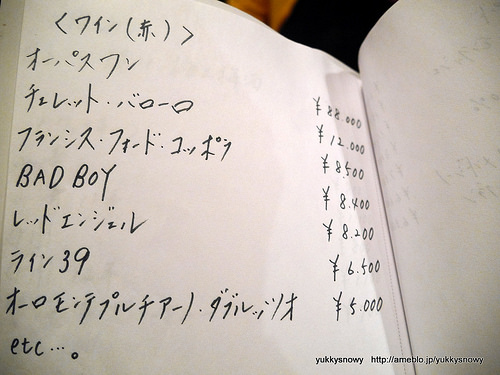 〈ワイン(赤)〉
オーパスワン ¥88.000
チェレット・バローロ ¥12.000
フランシス・フォード・コッポラ ¥8.500
BAD BOY ¥8.400
レッドエンジェル ¥8.200
ライン39 ¥6.500
オーロ モンテプルチアーノ・ダブルッツオ ¥5.000
etc…。
yukkysnowy http://ameblo.jp/yukkysnowy